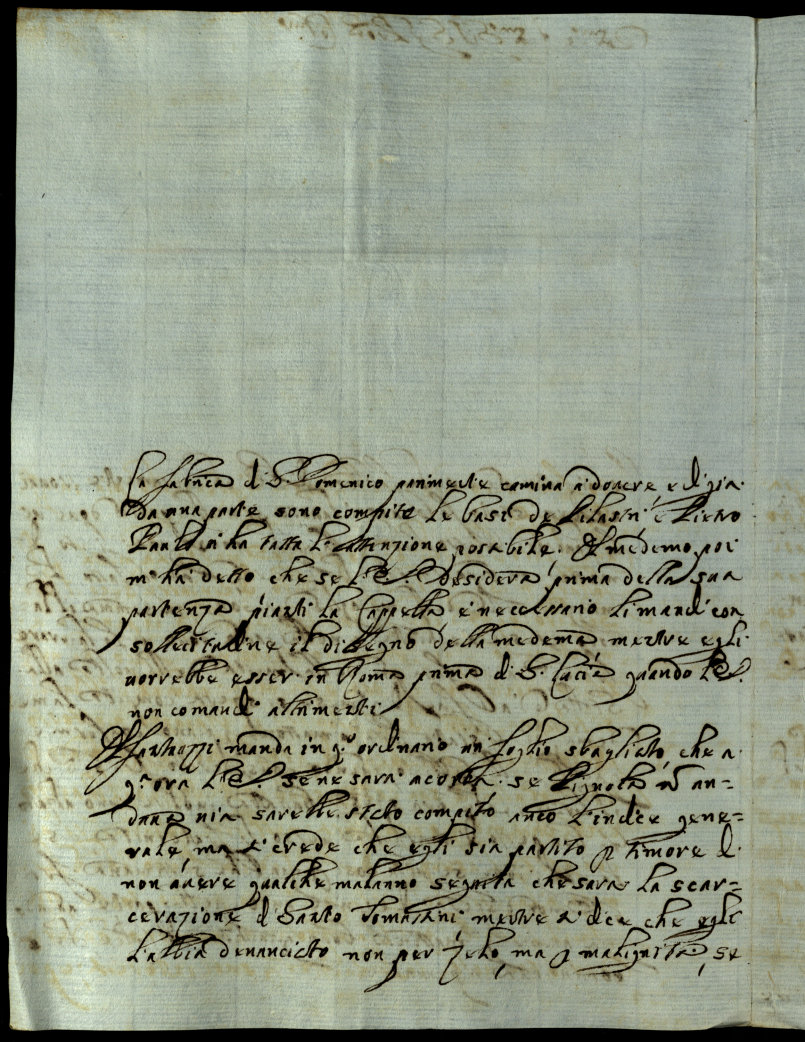 La fabrica di S. Domenico parimente camina a dovere e di già
da una parte sono compite le basi de Pilastri e Pietro
Paulo vi ha fatta l'attenzione possibile. Il medemo poi
m'ha detto che se V.S. desidera prima della sua
partenza pianti la Cappella è necessario li mandi con
sollecitudine il disegno della medema mentre egli
vorrebbe esser in Roma prima di S. Lucia quando V.S.
non comandi altrimenti
manda in q.o ordinario un foglio sbagliato, che a
q.a ora V.S. se ne sarà acorta. se Pignotta n̄ an=
dava via sarebbe stato compito anco l'indice gene=
rale, ma si crede che egli sia partito p timore di
non avere qualche malanno seguita che sarà la scar=
cerazione di Santo Tomasani mentre si dice che egli
l'abbia denunciato non per zelo, ma p malignità, se